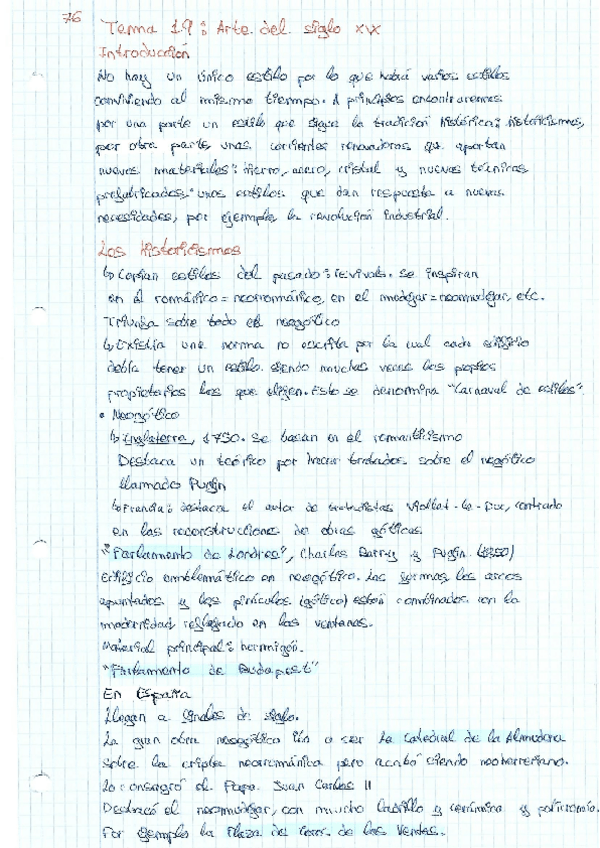 76
Tema 19: Arte del siglo XIX
Introducción
No hay un único estilo por lo que habrá varios estilos
conviviendo al mismo tiempo. A principios encontraremos
por una parte un estilo que sigue la tradición histórica: historicismos,
por otra parte unas corrientes renovadoras que aportan
nuevos materiales: hierro, acero, cristal y nuevas técnicas
prefabricadas, unos estilos que dan respuesta a nuevas
necesidades, por ejemplo la revolución industrial.
Los Historicismos
↳ Copian estilos del pasado: revivals. Se inspiran
en el románico = neorrománico, en el mudejar = neomudejar, etc.
Triunfa sobre todo el neogótico
↳ Existía una norma no escrita por la cual cada edificio
debía tener un estilo. Siendo muchas veces los propios
propietarios los que eligen. Esto se denomina "Carnaval de estilos".
• Neogótico
↳ Inglaterra, 1750. Se basan en el romanticismo
Destaca un teórico por hacer tratados sobre el neogótico
llamado Pugin
↳ Francia: destaca el autor de tratadistas Viollet-le-Duc, centrado
en las reconstrucciones de obras góticas.
"Parlamento de Londres", Charles Barry y Pugin.
Edificio emblemático en neogótico. Las formas los arcos
apuntados y los pináculos (gótico) están combinados con la
modernidad reflejado en las ventanas.
Material principal: hormigón.
"Parlamento de Budapest"
En España
Llegan a finales de siglo.
La gran obra neogótica iba a ser La Catedral de la Almudena
sobre la cripta neorrománica pero acabó siendo neoherreriano.
Lo consagró el Papa Juan Carlos II
Destacó el neomudejar, con mucho ladrillo y cerámica y policromía.
Por ejemplo la Plaza de toros de las Ventas.